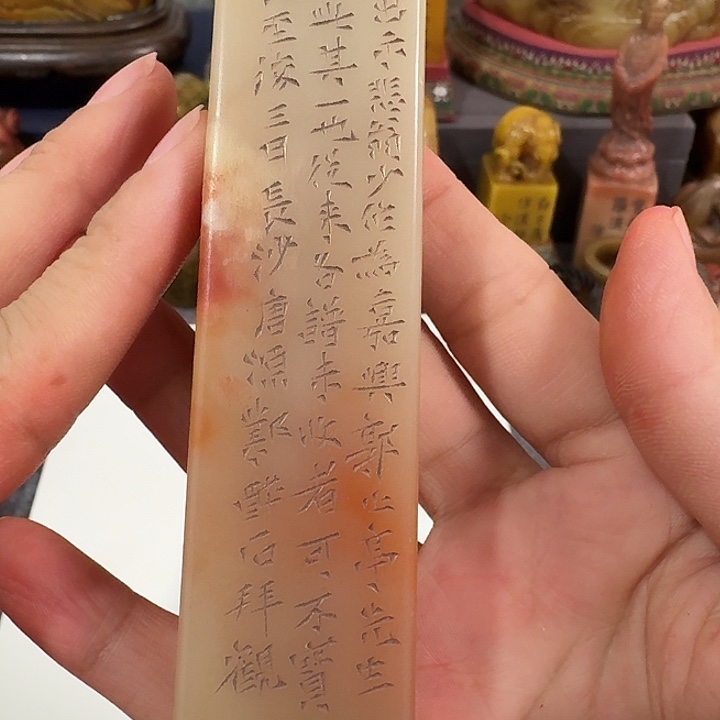 出示悲翁少作為嘉興郭止亭先生
此其一也從來各譜未收者可不寶
至後三日長沙唐源鄴醉石拜觀